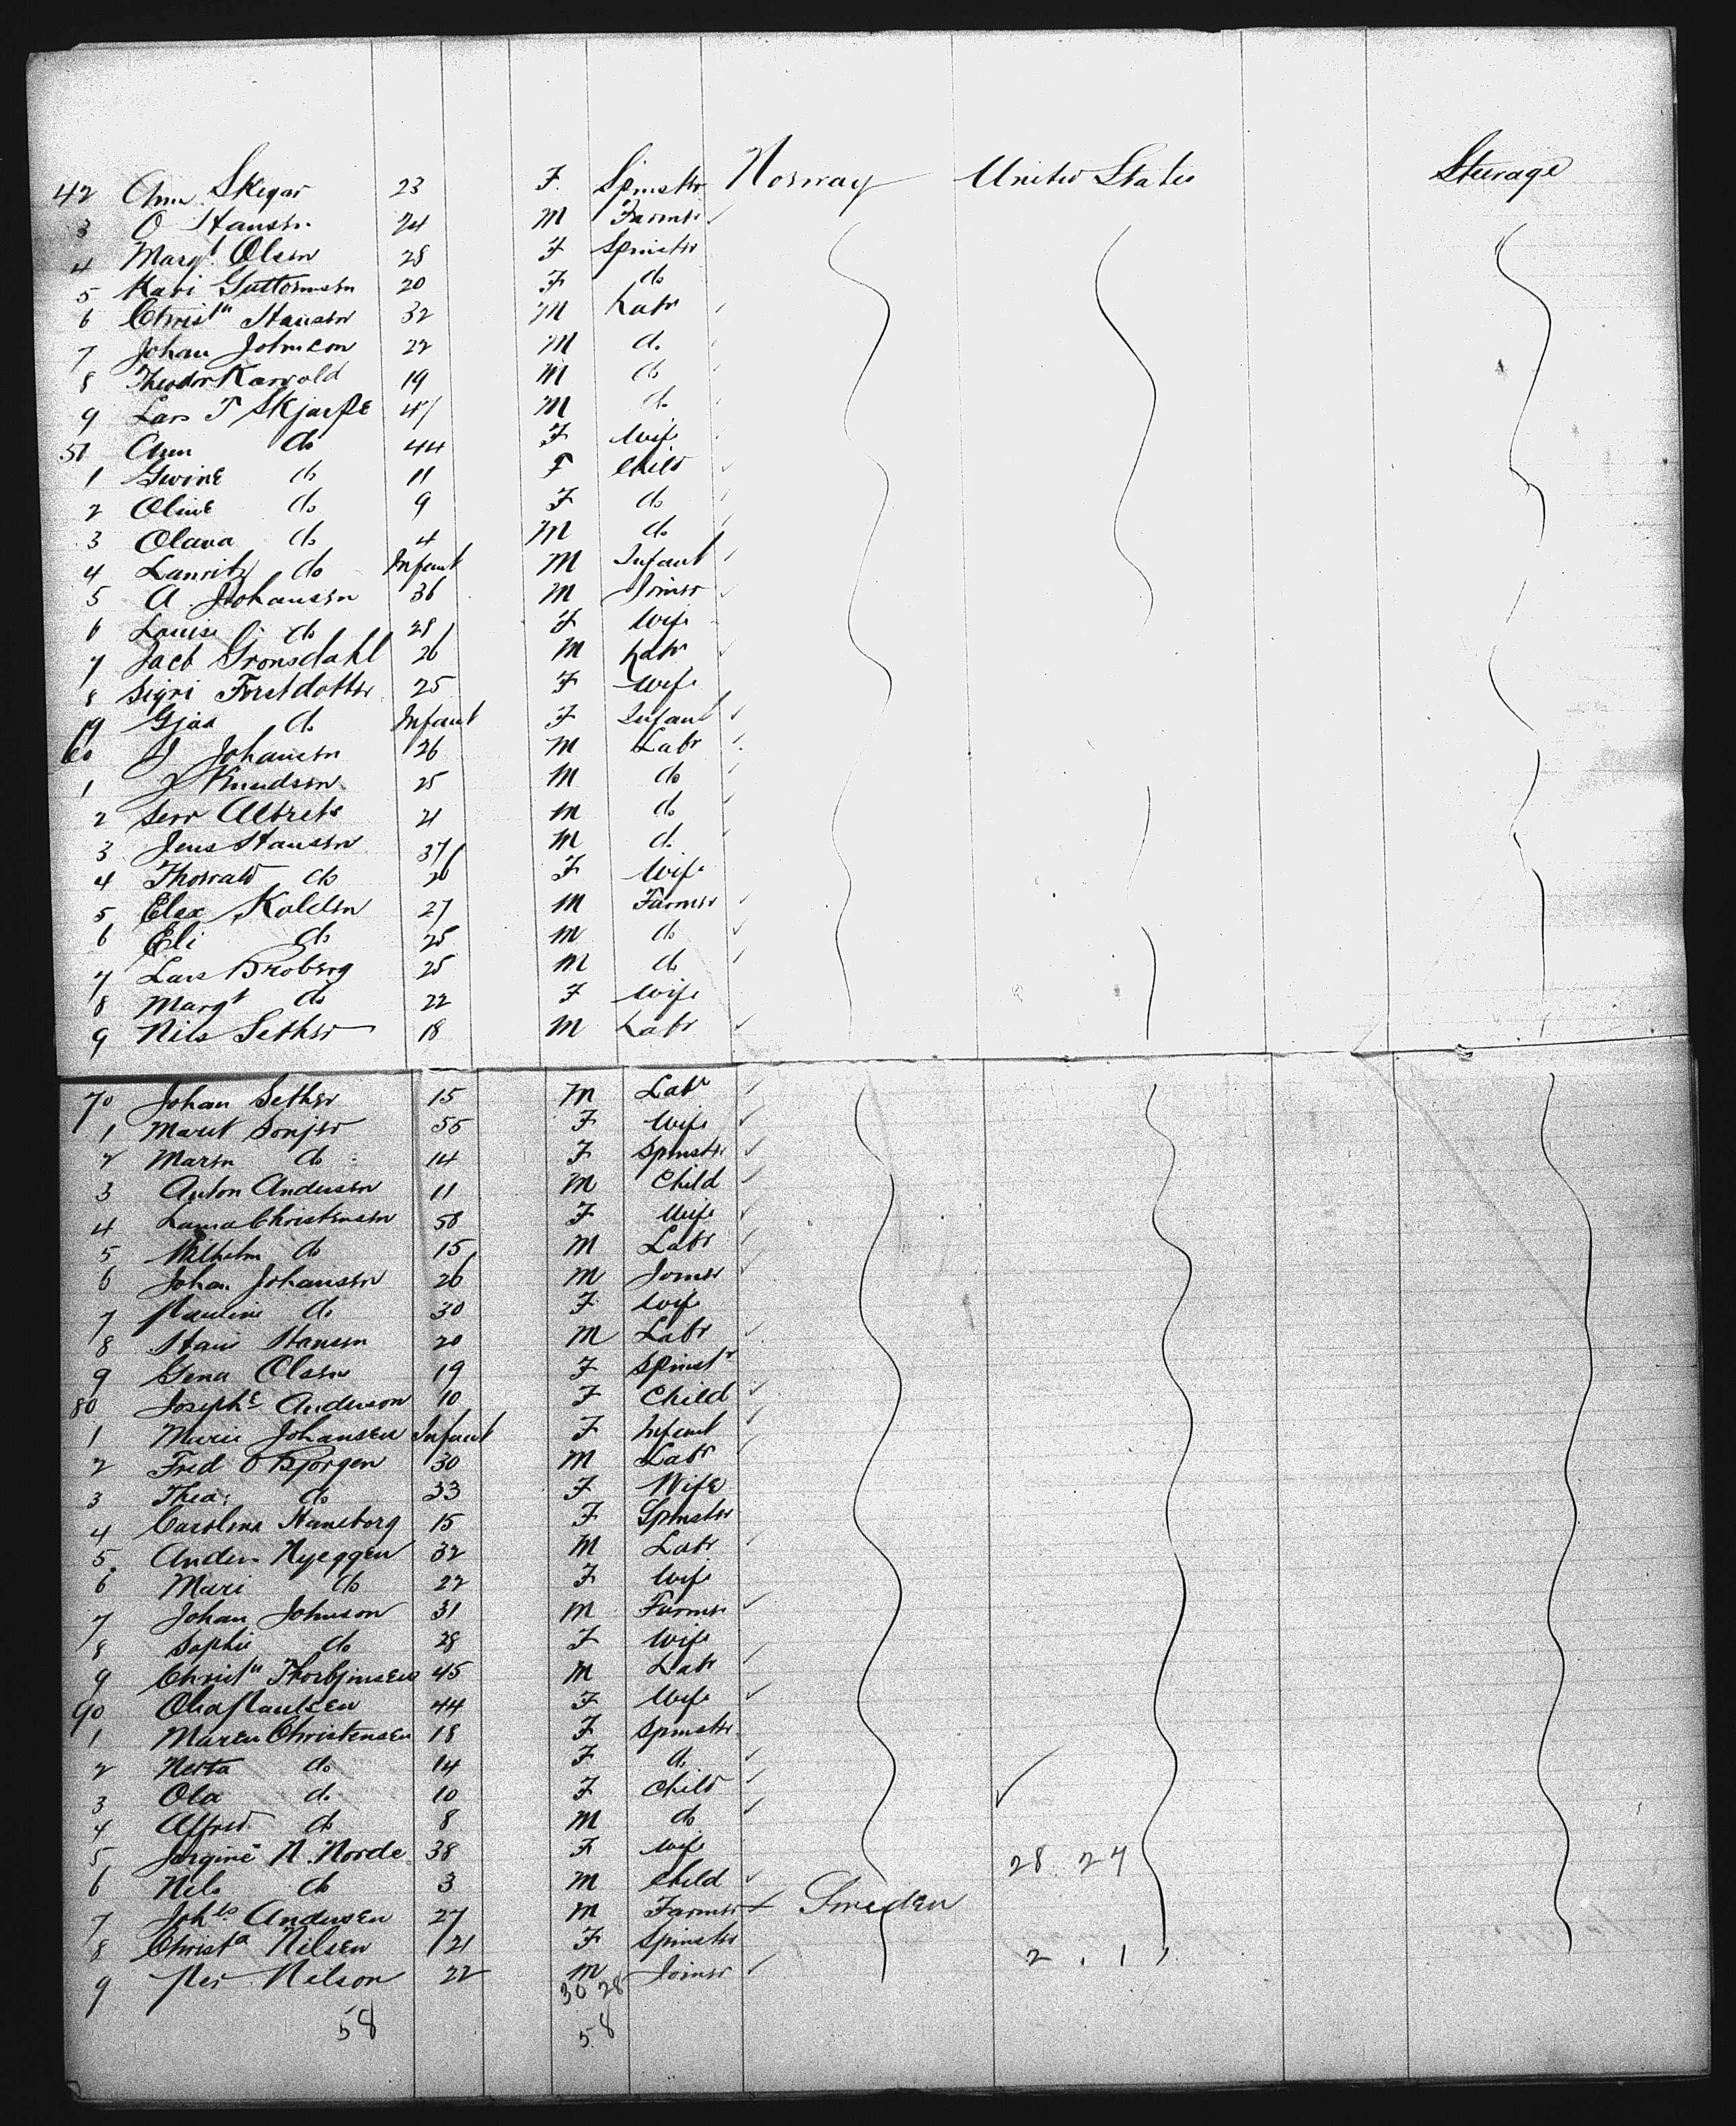 42 Ann Skegar 23 F. Spinster Norway United States Steerage
3 O Hansen 24 M Farmer
4 Margt. Olsen 28 F Spinster
5 Kari Guttormsen 20 F do
6 Christn Hansen 32 M Labr
7 Johan Johnson 22 M do
8 Theodor Karvold 19 M do
9 Lars T Skjarpe 47 M do
50 Ann do 44 F Wife
1 Gurine do 11 F Child
2 Oline do 9 F do
3 Olava do 4 M do
4 Lauritz do Infant M Infant
5 A Johansen 36 M Joiner
6 Louise do 28 F Wife
7 Jacb Gronsdahl 26 M Labr
8 Sigri Forstdotter 25 F Wife
59 Gjaa do Infant F Infant
60 J Johansen 26 M Labr
1 J Knudsen 25 M do
2 Serr Albrets 21 M do
3 Jens Hansen 37 M do
4 Thorvald do 26 F Wife
5 Elex Kolelsn 27 M Farmer
6 Eli do 25 M do
7 Lars Broberg 25 M do
8 Margt do 22 F Wife
9 Nils Sether 18 M Labr
70 Johan Sether 15 M Labr
1 Marit Sonjer 55 F Wife
2 Maren do 14 F Spinster
3 Anton Andersen 11 M Child
4 Laura Christensen 58 F Wife
5 Wilhelm do 15 M Labr
6 Johan Johansen 26 M Joiner
7 Pauline do 30 F Wife
8 Hans Hansen 20 M Labr
9 Gena Olsen 19 F Spinstr
80 Josephe Anderson 10 F Child
1 Marie Johansen Infant F Infant
2 Fred O Bjorgen 30 M Labr
3 Thea do 33 F Wife
4 Carolina Haneborg 15 F Spinster
5 Anders Nyeggen 32 M Labr
6 Mari do 22 F Wife
7 Johan Johnson 31 M Farmer
8 Sophie do 28 F Wife
9 Christn Thorbjinsen 45 M Labr
90 Olia Paulsen 44 F Wife
1 Maren Christensen 18 F Spinster
2 Netta do 14 F do
3 Ola do 10 F Child
4 Alfred do 8 M do
5 Jorgine N. Norde 38 F Wife 28 . 27
6 Nils do 3 M Child
7 Johes Andersen 27 M Farmer Sweden
8 Christa Nilsen 21 F Spinster 2 . 1
9 Per Nilson 22 M Joiner
30 28
58 58